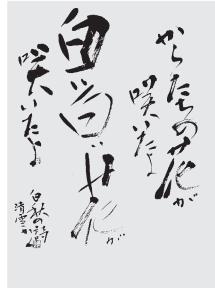 からたちの花が
咲いたよ
白い白い花が
咲いたよ
白秋の詩
清雲かく